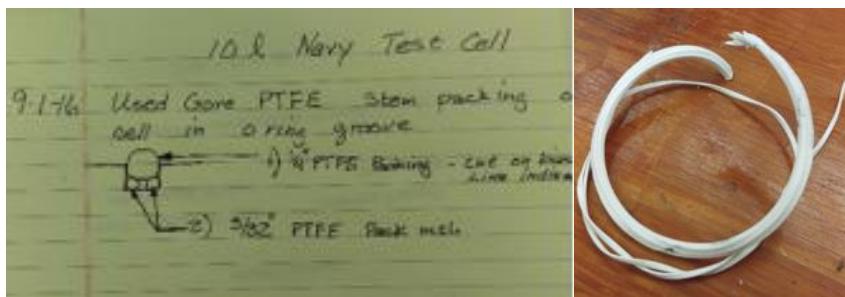 10 l Navy Test Cell
9-1-16 Used Gore PTFE Stem packing o
cell in o ring groove
1) ¼" PTFE Packing - cut on
Line
2) 3/32" PTFE Pack